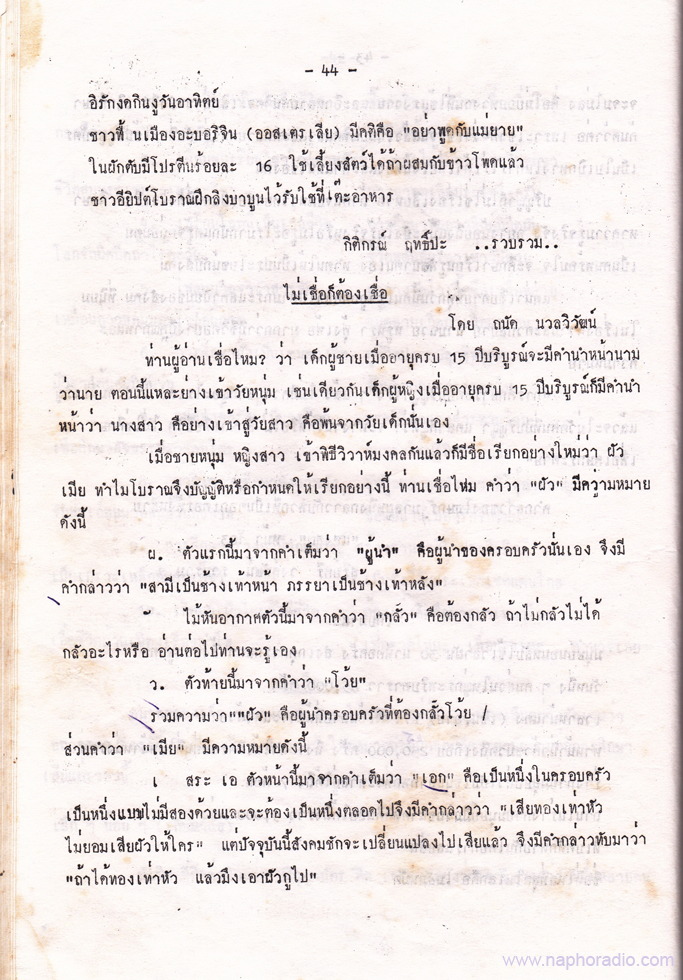 - 44 -
อิรักงดกินงูวันอาทิตย์
ชาวพื้นเมืองอะบอริจิน (ออสเตรเลีย) มีคติคือ "อย่าพูดกับแม่ยาย"
ในผักตับมีโปรตีนร้อยละ 16 ใช้เลี้ยงสัตว์ได้ถ้าผสมกับข้าวโพดแล้ว
ชาวอียิปต์โบราณฝึกลิงบาบูนไว้รับใช้ที่โต๊ะอาหาร
กิติกรณ์ ฤทธิ์ปะ ..รวบรวม..
ไม่เชื่อก็ต้องเชื่อ
โดย ถนัด นวลวิวัฒน์
ท่านผู้อ่านเชื่อไหม? ว่า เด็กผู้ชายเมื่ออายุครบ 15 ปีบริบูรณ์จะมีคำนำหน้านาม
ว่านาย ตอนนี้แหละย่างเข้าวัยหนุ่ม เช่นเดียวกันเด็กผู้หญิงเมื่ออายุครบ 15 ปีบริบูรณ์ก็มีคำนำ
หน้าว่า นางสาว คือยางเข้าสู่วัยสาว คือพ้นจากวัยเด็กนั่นเอง
เมื่อชายหนุ่ม หญิงสาว เข้าพิธีวิวาห์มงคลกันแล้วก็มีชื่อเรียกอย่างใหม่ว่า ผัว
เมีย ทำไมโบราณจึงบัญญัติหรือกำหนดให้เรียกอย่างนี้ ท่านเชื่อไหม คำว่า "ผัว" มีความหมาย
ดังนี้
ผ. ตัวแรกนี้มาจากคำเต็มว่า "ผู้นำ" คือผู้นำของครอบครัวนั่นเอง จึงมี
คำกล่าวว่า "สามีเป็นช้างเท้าหน้า ภรรยาเป็นช้างเท้าหลัง"
ั ไม้หันอากาศตัวนี้มาจากคำว่า "กลั้ว" คือต้องกลัว ถ้าไม่กลัวไม่ได้
กลัวอะไรหรือ อ่านต่อไปท่านจะรู้เอง
ว. ตัวท้ายนี้มาจากคำว่า "โว้ย"
รวมความว่า""ผัว" คือผู้นำครอบครัวที่ต้องกลั้วโว้ย /
ส่วนคำว่า "เมีย" มีความหมายดังนี้
เ สระ เอ ตัวหน้านี้มาจากคำเต็มว่า "เอก" คือเป็นหนึ่งในครอบครัว
เป็นหนึ่งแบบไม่มีสองด้วยและจะต้องเป็นหนึ่งตลอดไปจึงมีคำกล่าวว่า "เสียทองเท่าหัว
ไม่ยอมเสียผัวให้ใคร" แต่ปัจจุบันนี้สังคมชักจะเปลี่ยนแปลงไปเสียแล้ว จึงมีคำกล่าวทับมาว่า
"ถ้าได้ทองเท่าหัว แล้วมึงเอาผัวกูไป"
www.naphoradio.com